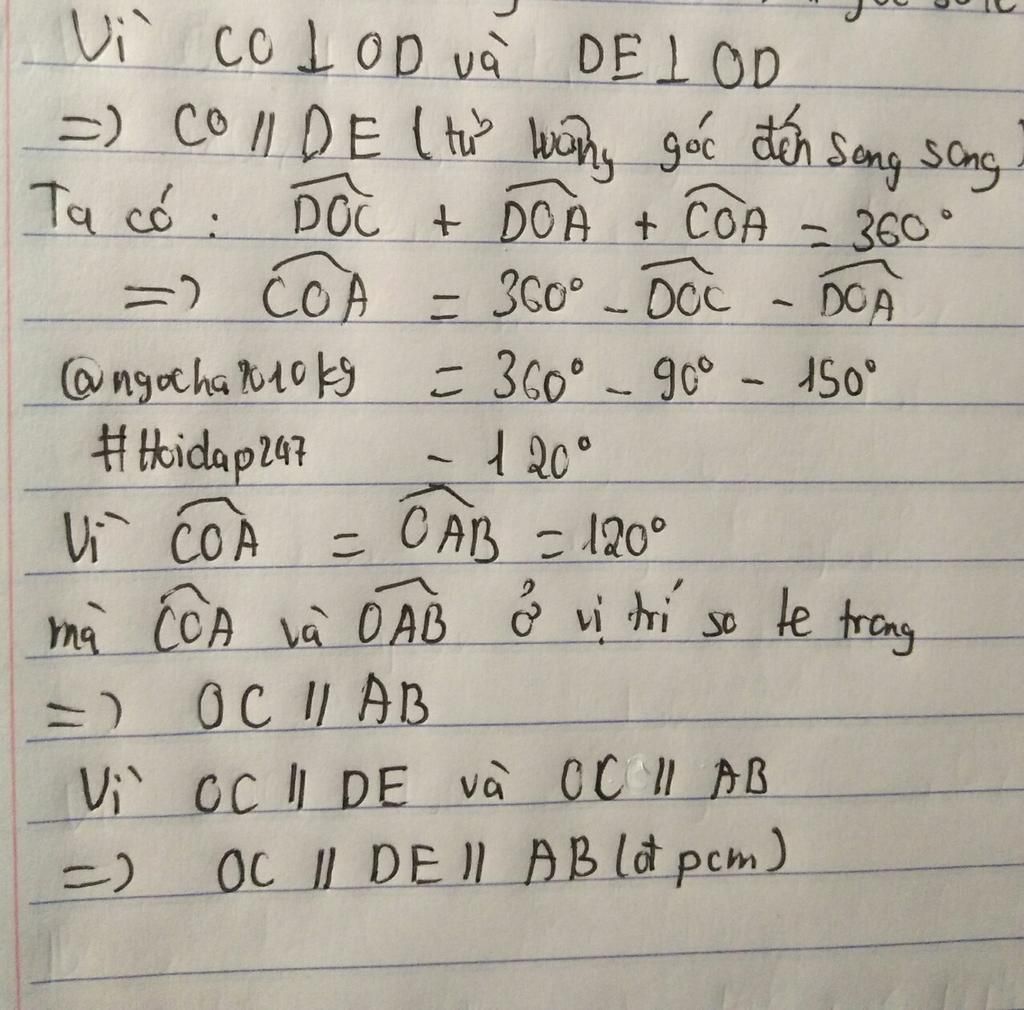 Vì CO ⊥ OD và DE ⊥ OD
=> CO // DE (từ vuông góc đến song song)
Ta có : DOC + DOA + COA = 360°
=> COA = 360° - DOC - DOA
@ngocha2010kg = 360° - 90° - 150°
#Hoidap247 - 120°
Vì COA = OAB = 120°
mà COA và OAB ở vị trí so le trong
=> OC // AB
Vì OC // DE và OC // AB
=> OC // DE // AB (đpcm)